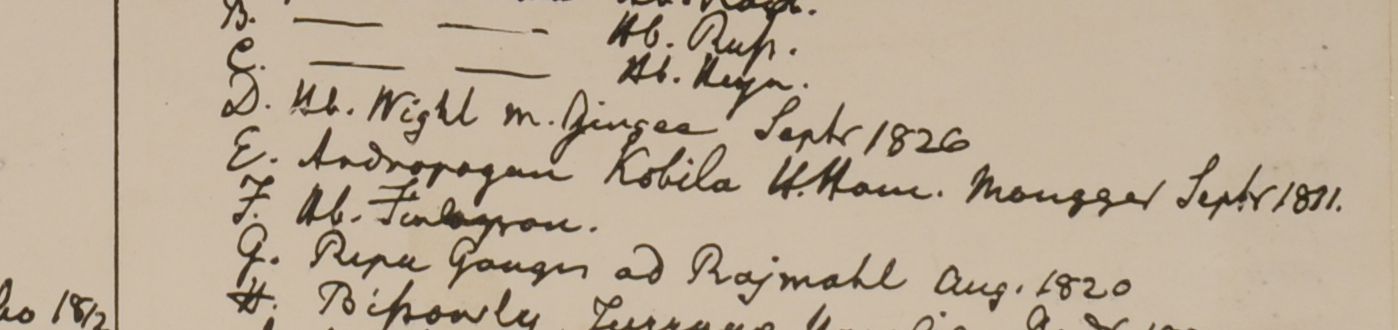 B. — — Hb. Russ.
C. — — Hb. Heyn.
D. Hb. Wight m. Gingee Septr 1826
E. Andropogon Kobila H. Ham. Mongger Septr 1811.
F. Hb. Finlayson.
G. Ripa Gangis ad Rajmahl Aug. 1820
H. Bissowly